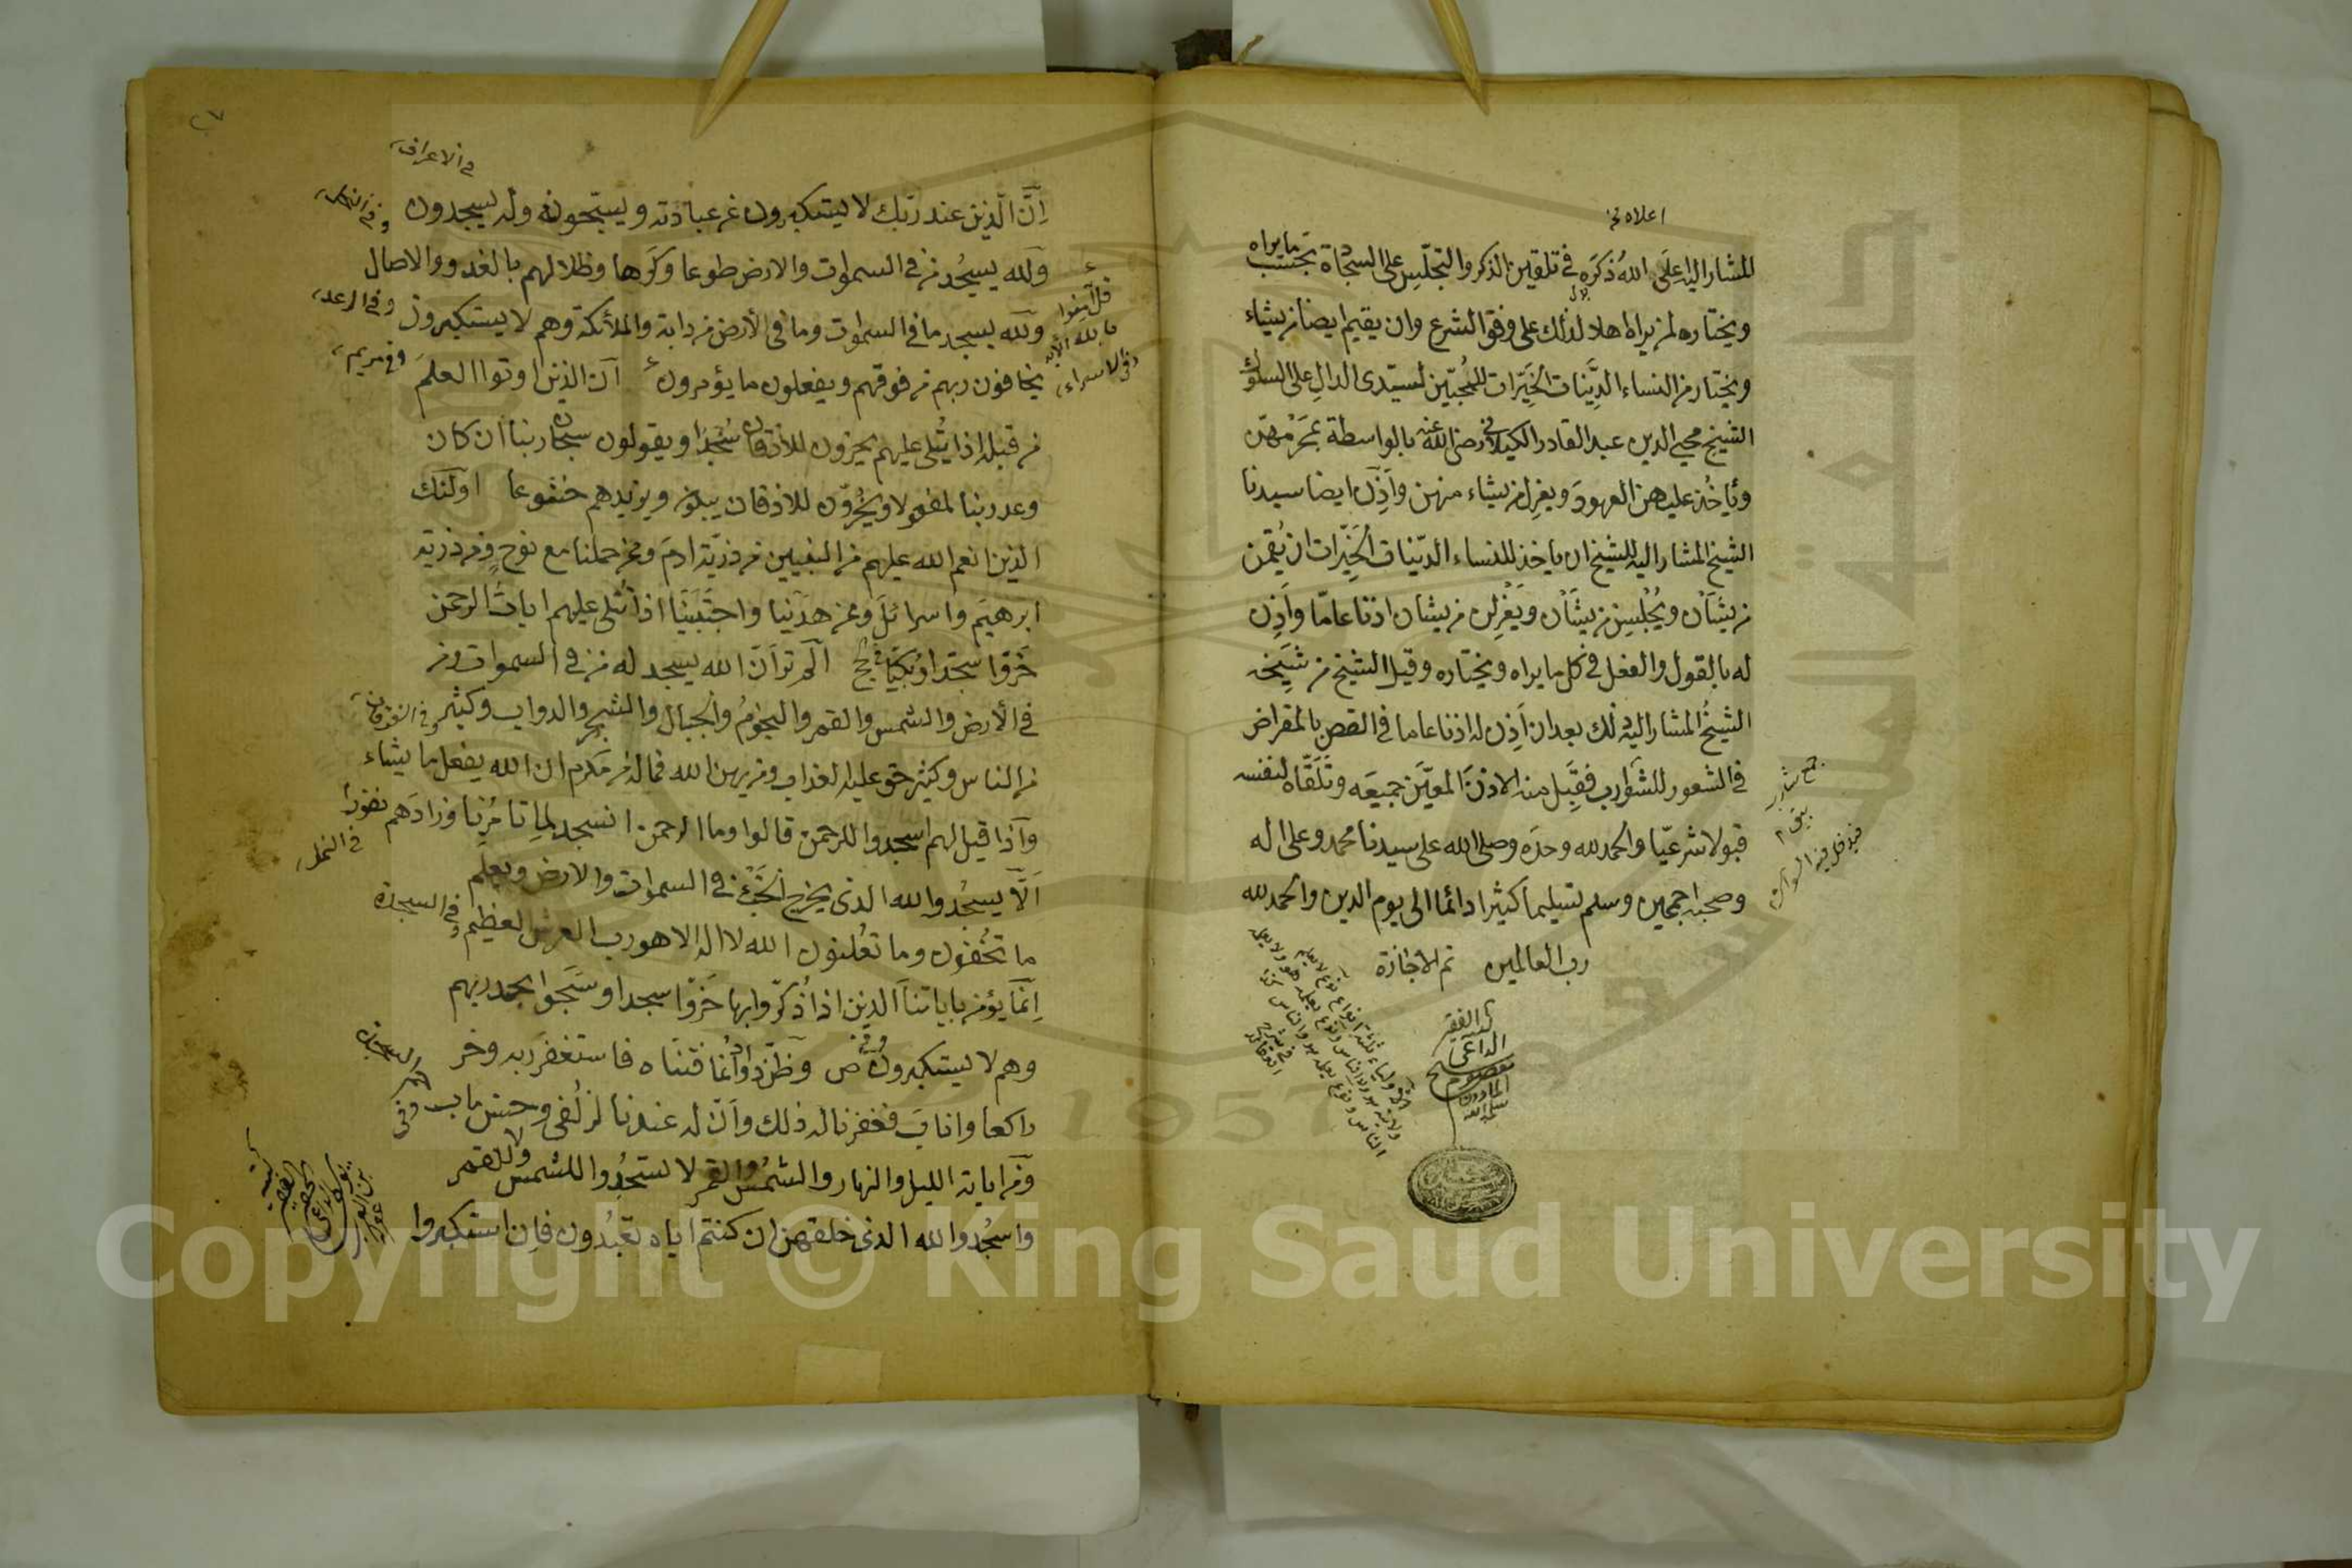 اعلاه نخ
للمشار اليه اعلى الله ذكره في تلقين الذكر والتجليس على السجادة بحسب ما يراه
ويختاره لمن يراه اهلا لذلك على وفق الشرع وان يقيم ايضا من يشاء
ويختار من النساء الدينات الخيرات للمحبين لسيدى الدال على السلوك
الشيخ محيي الدين عبد القادر الكيلاني رضى الله عنه بالواسطة بمحرمهن
وياخذ عليهن العهود ويعزل من يشاء منهن واذن ايضا سيدنا
الشيخ المشار اليه للشيخ ان ياخذ للنساء الدينات الخيرات ان يقمن
من يشأن ويجلسن من يشأن ويعزلن من يشان اذنا عاما واذن
له بالقول والفعل في كل ما يراه ويختاره وقبل الشيخ من شيخه
الشيخ المشار اليه ذلك بعد ان اذن له اذنا عاما في القص بالمقراض
في الشعور للشوارب فقبل منه الاذن المعين جميعه وتلقاه لنفسه
قبولا شرعيا والحمد لله وحده وصلى الله على سيدنا محمد وعلى اله
وصحبه اجمعين وسلم تسليما كثيرا دائما الى يوم الدين والحمد لله
رب العالمين تم الاجازة
جمع شارب
الفقير
الداعي
في الاعراف
ان الذين عند ربك لا يستكبرون عن عبادته ويسبحونه وله يسجدون
ولله يسجد من في السموات والارض طوعا وكرها وظلالهم بالغدو والاصال
وفي الرعد
ولله يسجد ما في السموات وما في الأرض من دابة والملائكة وهم لا يستكبرون
قل آمنوا
بالله الآية
في الاسراء
يخافون ربهم من فوقهم ويفعلون ما يؤمرون ان الذين اوتوا العلم
وفي مريم
من قبله اذا يتلى عليهم يخرون للاذقان سجدا ويقولون سبحان ربنا ان كان
وعد ربنا لمفعولا ويخرون للاذقان يبكون ويزيدهم خشوعا اولئك
الذين انعم الله عليهم من النبيين من ذرية ادم وممن حملنا مع نوح ومن ذرية
ابرهيم واسرائل وممن هدينا واجتبينا اذا تتلى عليهم ايات الرحمن
خروا سجدا وبكيا في الحج الم تر ان الله يسجد له من في السموات ومن
في الأرض والشمس والقمر والنجوم والجبال والشجر والدواب وكثير
وفي الفرقان
من الناس وكثير حق عليه العذاب ومن يهن الله فما له من مكرم ان الله يفعل ما يشاء
واذا قيل لهم اسجدوا للرحمن قالوا وما الرحمن انسجد لما تامرنا وزادهم نفورا
في النمل
الا يسجدوا لله الذى يخرج الخبء في السموات والارض ويعلم
ما تخفون وما تعلنون الله لا اله الا هو رب العرش العظيم
وفي السجدة
انما يؤمن باياتنا الذين اذا ذكروا بها خروا سجدا وسبحوا بحمد ربهم
وهم لا يستكبرون وفي ص وظن داود انما فتناه فاستغفر ربه وخر
راكعا واناب فغفرنا له ذلك وان له عندنا لزلفى وحسن ماب وفي
ومن اياته الليل والنهار والشمس والقمر لا تسجدوا للشمس ولا للقمر
واسجدوا لله الذى خلقهن ان كنتم اياه تعبدون فان استكبروا
Copyright © King Saud University
1957